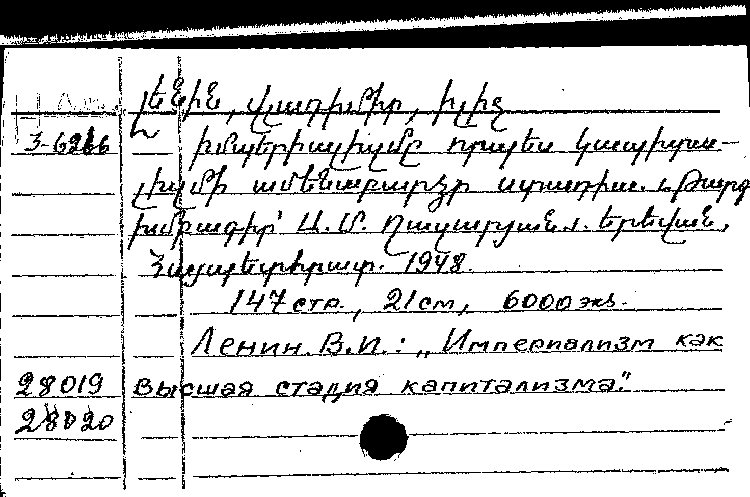 Լենին, Վլադիմիր, Իլիչ
3-6266 Իմպերիալիզմը որպես կապիտա-
լիզմի ամենաբարձր ստադիա. Թարգ
խմբագիր՝ Ա. Մ. Երևան,
Հայպետհրատ. 1948.
147 стр., 21 см, 6000 экз.
Ленин. В.И.: „Империализм как
28019 высшая стадия капитализма."
28020